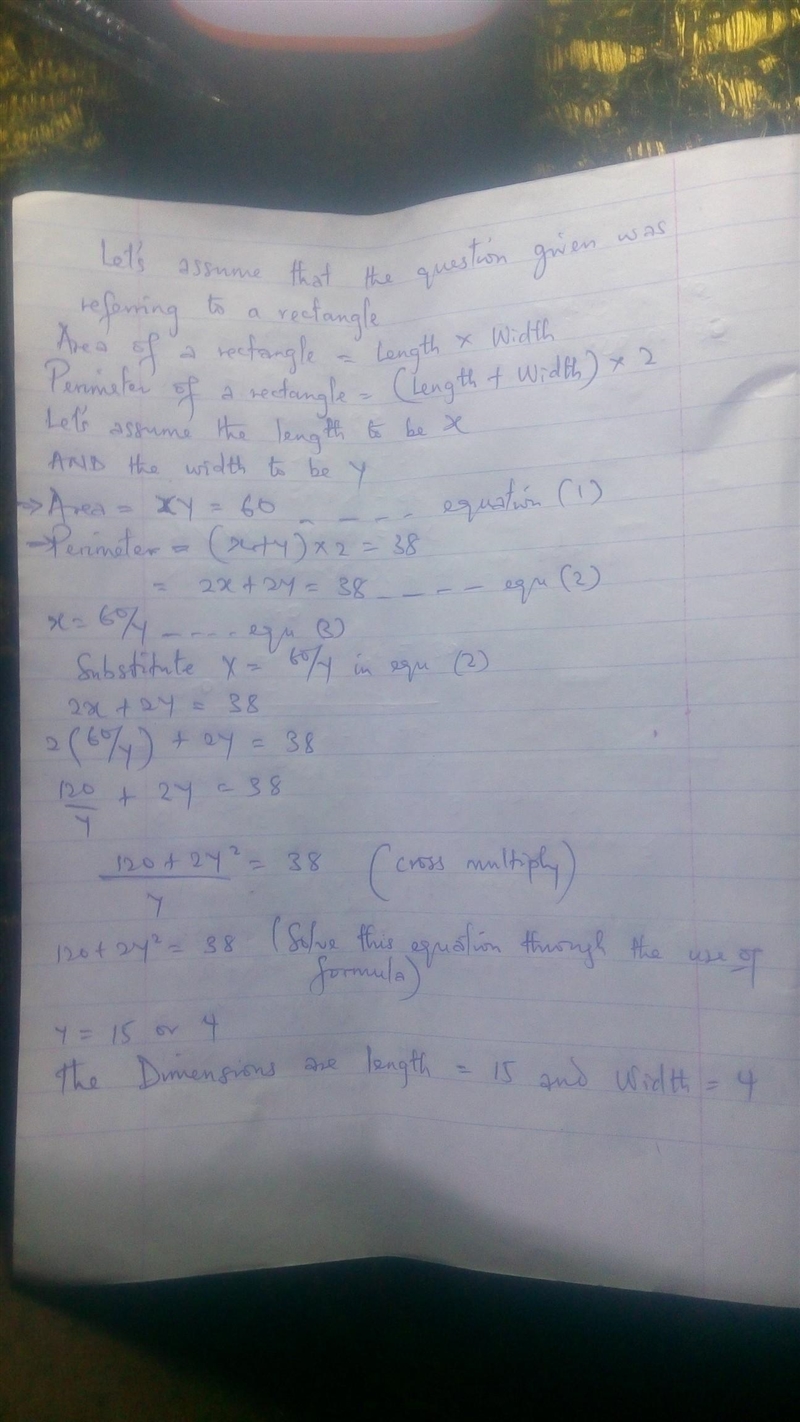 Let's assume that the question given was
referring to a rectangle
Area of a rectangle = Length × Width
Perimeter of a rectangle = (Length + Width) × 2
Let's assume the length to be x
AND the width to be y
→ Area = xy = 60 _ _ _ _ _ equation (1)
→ Perimeter = (x+y) × 2 = 38
= 2x + 2y = 38 _ _ _ _ equ (2)
x = 60/y _ _ _ _ equ (3)
Substitute x = 60/y in equ (2)
2x + 2y = 38
2(60/y) + 2y = 38
120/y + 2y = 38
(120 + 2y²)/y = 38 (cross multiply)
120 + 2y² = 38 (Solve this equation through the use of
formula)
y = 15 or 4
The Dimensions are length = 15 and Width = 4